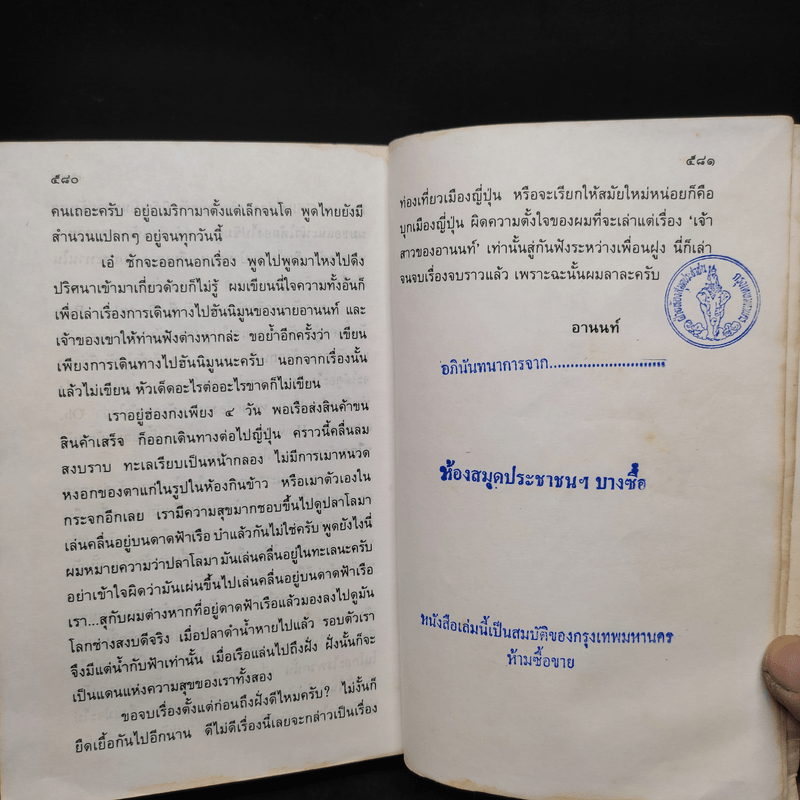 ๕๘๐
คนเถอะครับ อยู่อเมริกามาตั้งแต่เล็กจนโต พูดไทยยังมี
สำนวนแปลกๆ อยู่จนทุกวันนี้
เอ๋ ชักจะออกนอกเรื่อง พูดไปพูดมาไหงไปดึง
ปริศนาเข้ามาเกี่ยวด้วยก็ไม่รู้ ผมเขียนนี่ใจความทั้งอันก็
เพื่อเล่าเรื่องการเดินทางไปฮันนิมูนของนายอานนท์ และ
เจ้าของเขาให้ท่านฟังต่างหากล่ะ ขอย้ำอีกครั้งว่า เขียน
เพียงการเดินทางไปฮันนิมูนนะครับ นอกจากเรื่องนั้น
แล้วไม่เขียน หัวเด็ดอะไรต่ออะไรขาดก็ไม่เขียน
เราอยู่ฮ่องกงเพียง ๔ วัน พอเรือส่งสินค้าขน
สินค้าเสร็จ ก็ออกเดินทางต่อไปญี่ปุ่น คราวนี้คลื่นลม
สงบราบ ทะเลเรียบเป็นหน้ากลอง ไม่มีการเมาหนวด
หงอกของตาแก่ในรูปในห้องกินข้าว หรือเมาตัวเองใน
กระจกอีกเลย เรามีความสุขมากชอบขึ้นไปดูปลาโลมา
เล่นคลื่นอยู่บนดาดฟ้าเรือ บ๋าแล้วกันไม่ใช่ครับ พูดยังไงนี่
ผมหมายความว่าปลาโลมา มันเล่นคลื่นอยู่ในทะเลนะครับ
อย่าเข้าใจผิดว่ามันเผ่นขึ้นไปเล่นคลื่นอยู่บนดาดฟ้าเรือ
เรา...สุกับผมต่างหากที่อยู่ดาดฟ้าเรือแล้วมองลงไปดูมัน
โลกช่างสงบดีจริง เมื่อปลาดำน้ำหายไปแล้ว รอบตัวเรา
จึงมีแต่น้ำกับฟ้าเท่านั้น เมื่อเรือแล่นไปถึงฝั่ง ฝั่งนั้นก็จะ
เป็นแดนแห่งความสุขของเราทั้งสอง
ขอจบเรื่องตั้งแต่ก่อนถึงฝั่งดีไหมครับ? ไม่งั้นก็
ยืดเยื้อกันไปอีกนาน ดีไม่ดีเรื่องนี้เลยจะกล่าวเป็นเรื่อง
๕๘๑
ท่องเที่ยวเมืองญี่ปุ่น หรือจะเรียกให้สมัยใหม่หน่อยก็คือ
บุกเมืองญี่ปุ่น ผิดความตั้งใจของผมที่จะเล่าแต่เรื่อง ‘เจ้า
สาวของอานนท์’ เท่านั้นสู่กันฟังระหว่างเพื่อนฝูง นี่ก็เล่า
จนจบเรื่องจบราวแล้ว เพราะฉะนั้นผมลาละครับ
อานนท์
อภินันทนาการจาก..............................
ห้องสมุดประชาชนฯ บางซื่อ
หนังสือเล่มนี้เป็นสมบัติของกรุงเทพมหานคร
ห้ามซื้อขาย